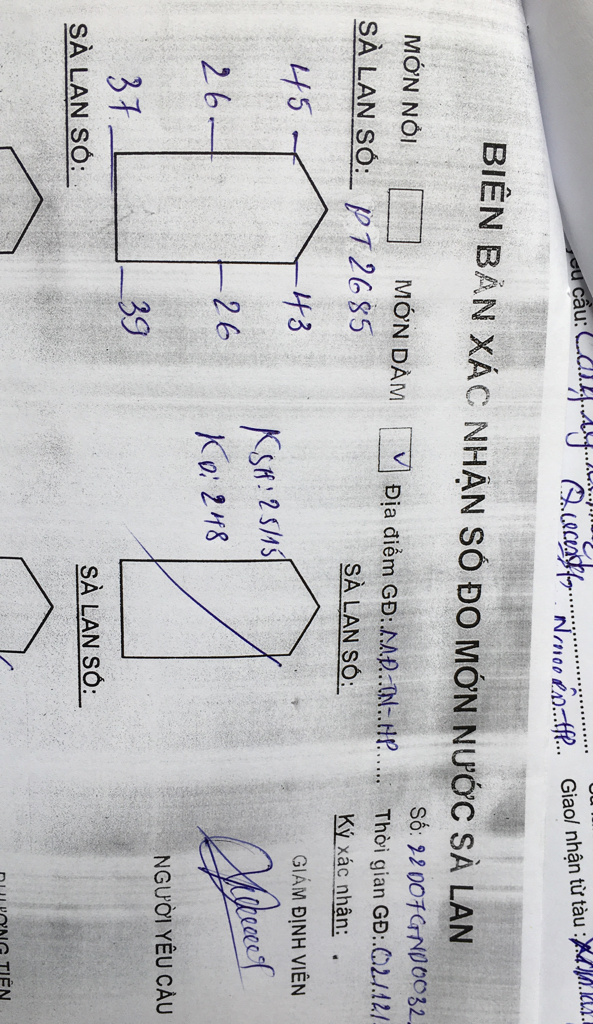 yêu cầu:
Giao/ nhận từ tàu :
BIÊN BẢN XÁC NHẬN SỐ ĐO MỚN NƯỚC SÀ LAN
Số: 22D07GND0032
MỚN NỔI MỚN DẦM V Địa điểm GĐ: MĐ-TN-HP Thời gian GĐ:
SÀ LAN SỐ: PT 2685
SÀ LAN SỐ:
Ký xác nhận:
45 43
26 26
37 39
KSH: 25115
KĐ: 248
GIÁM ĐỊNH VIÊN
NGƯỜI YÊU CẦU
SÀ LAN SỐ:
SÀ LAN SỐ:
PHƯƠNG TIỆN